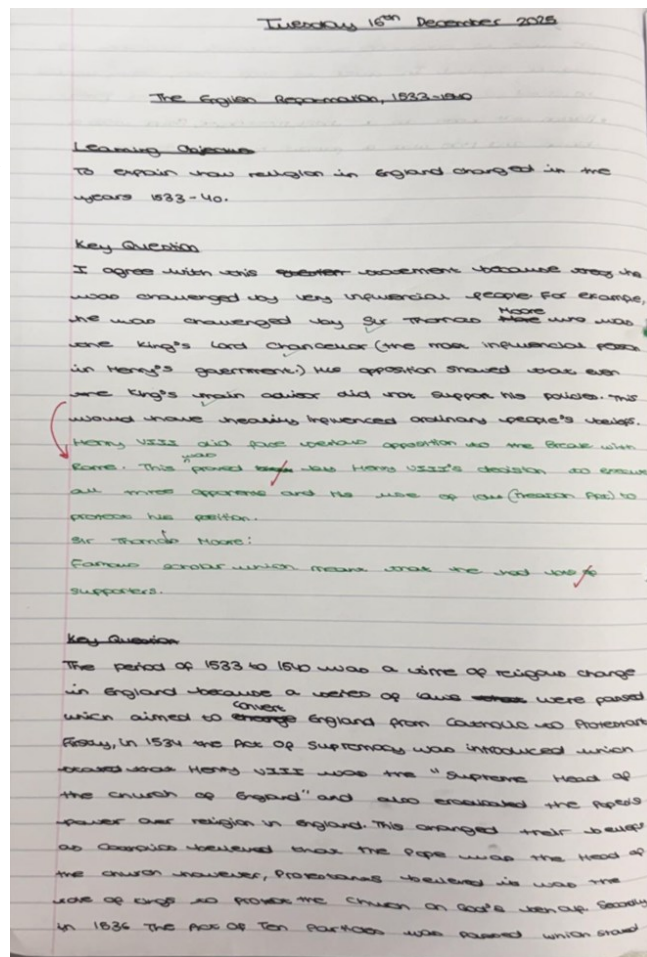 Tuesday 16th December 2025
The English Reformation, 1533-1540
Learning Objective
To explain how religion in England changed in the
years 1533-40.
Key Question
I agree with this statement because he
was challenged by very influencial people. For example,
he was challenged by Sir Thomas Moore who was
the King's Lord Chancellor (the most influencial person
in Henry's government.) His opposition showed that even
the King's main advisor did not support his policies. This
would have heavily influenced ordinary people's beliefs.
Henry VIII did face serious opposition to the Break with
Rome. This was proved by Henry VIII's decision to execute
all three opponents and his use of law (Treason Act) to
protect his position.
Sir Thomas Moore:
Famous scholar which meant that he had lots of
supporters.
Key Question
The period of 1533 to 1540 was a time of religous change
in England because a series of laws were passed
which aimed to convert England from Catholic to Protestant.
Firstly, in 1534 the Act of Supremacy was introduced which
stated that Henry VIII was the "Supreme Head of
the Church of England" and also the Pope's
power over religion in England. This changed their beliefs
as Catholics believed that the Pope was the Head of
the church however, Protestants believed it was the
role of kings to protect the Church on God's behalf. Secondly
in 1536 The Act of Ten Articles was passed which stated